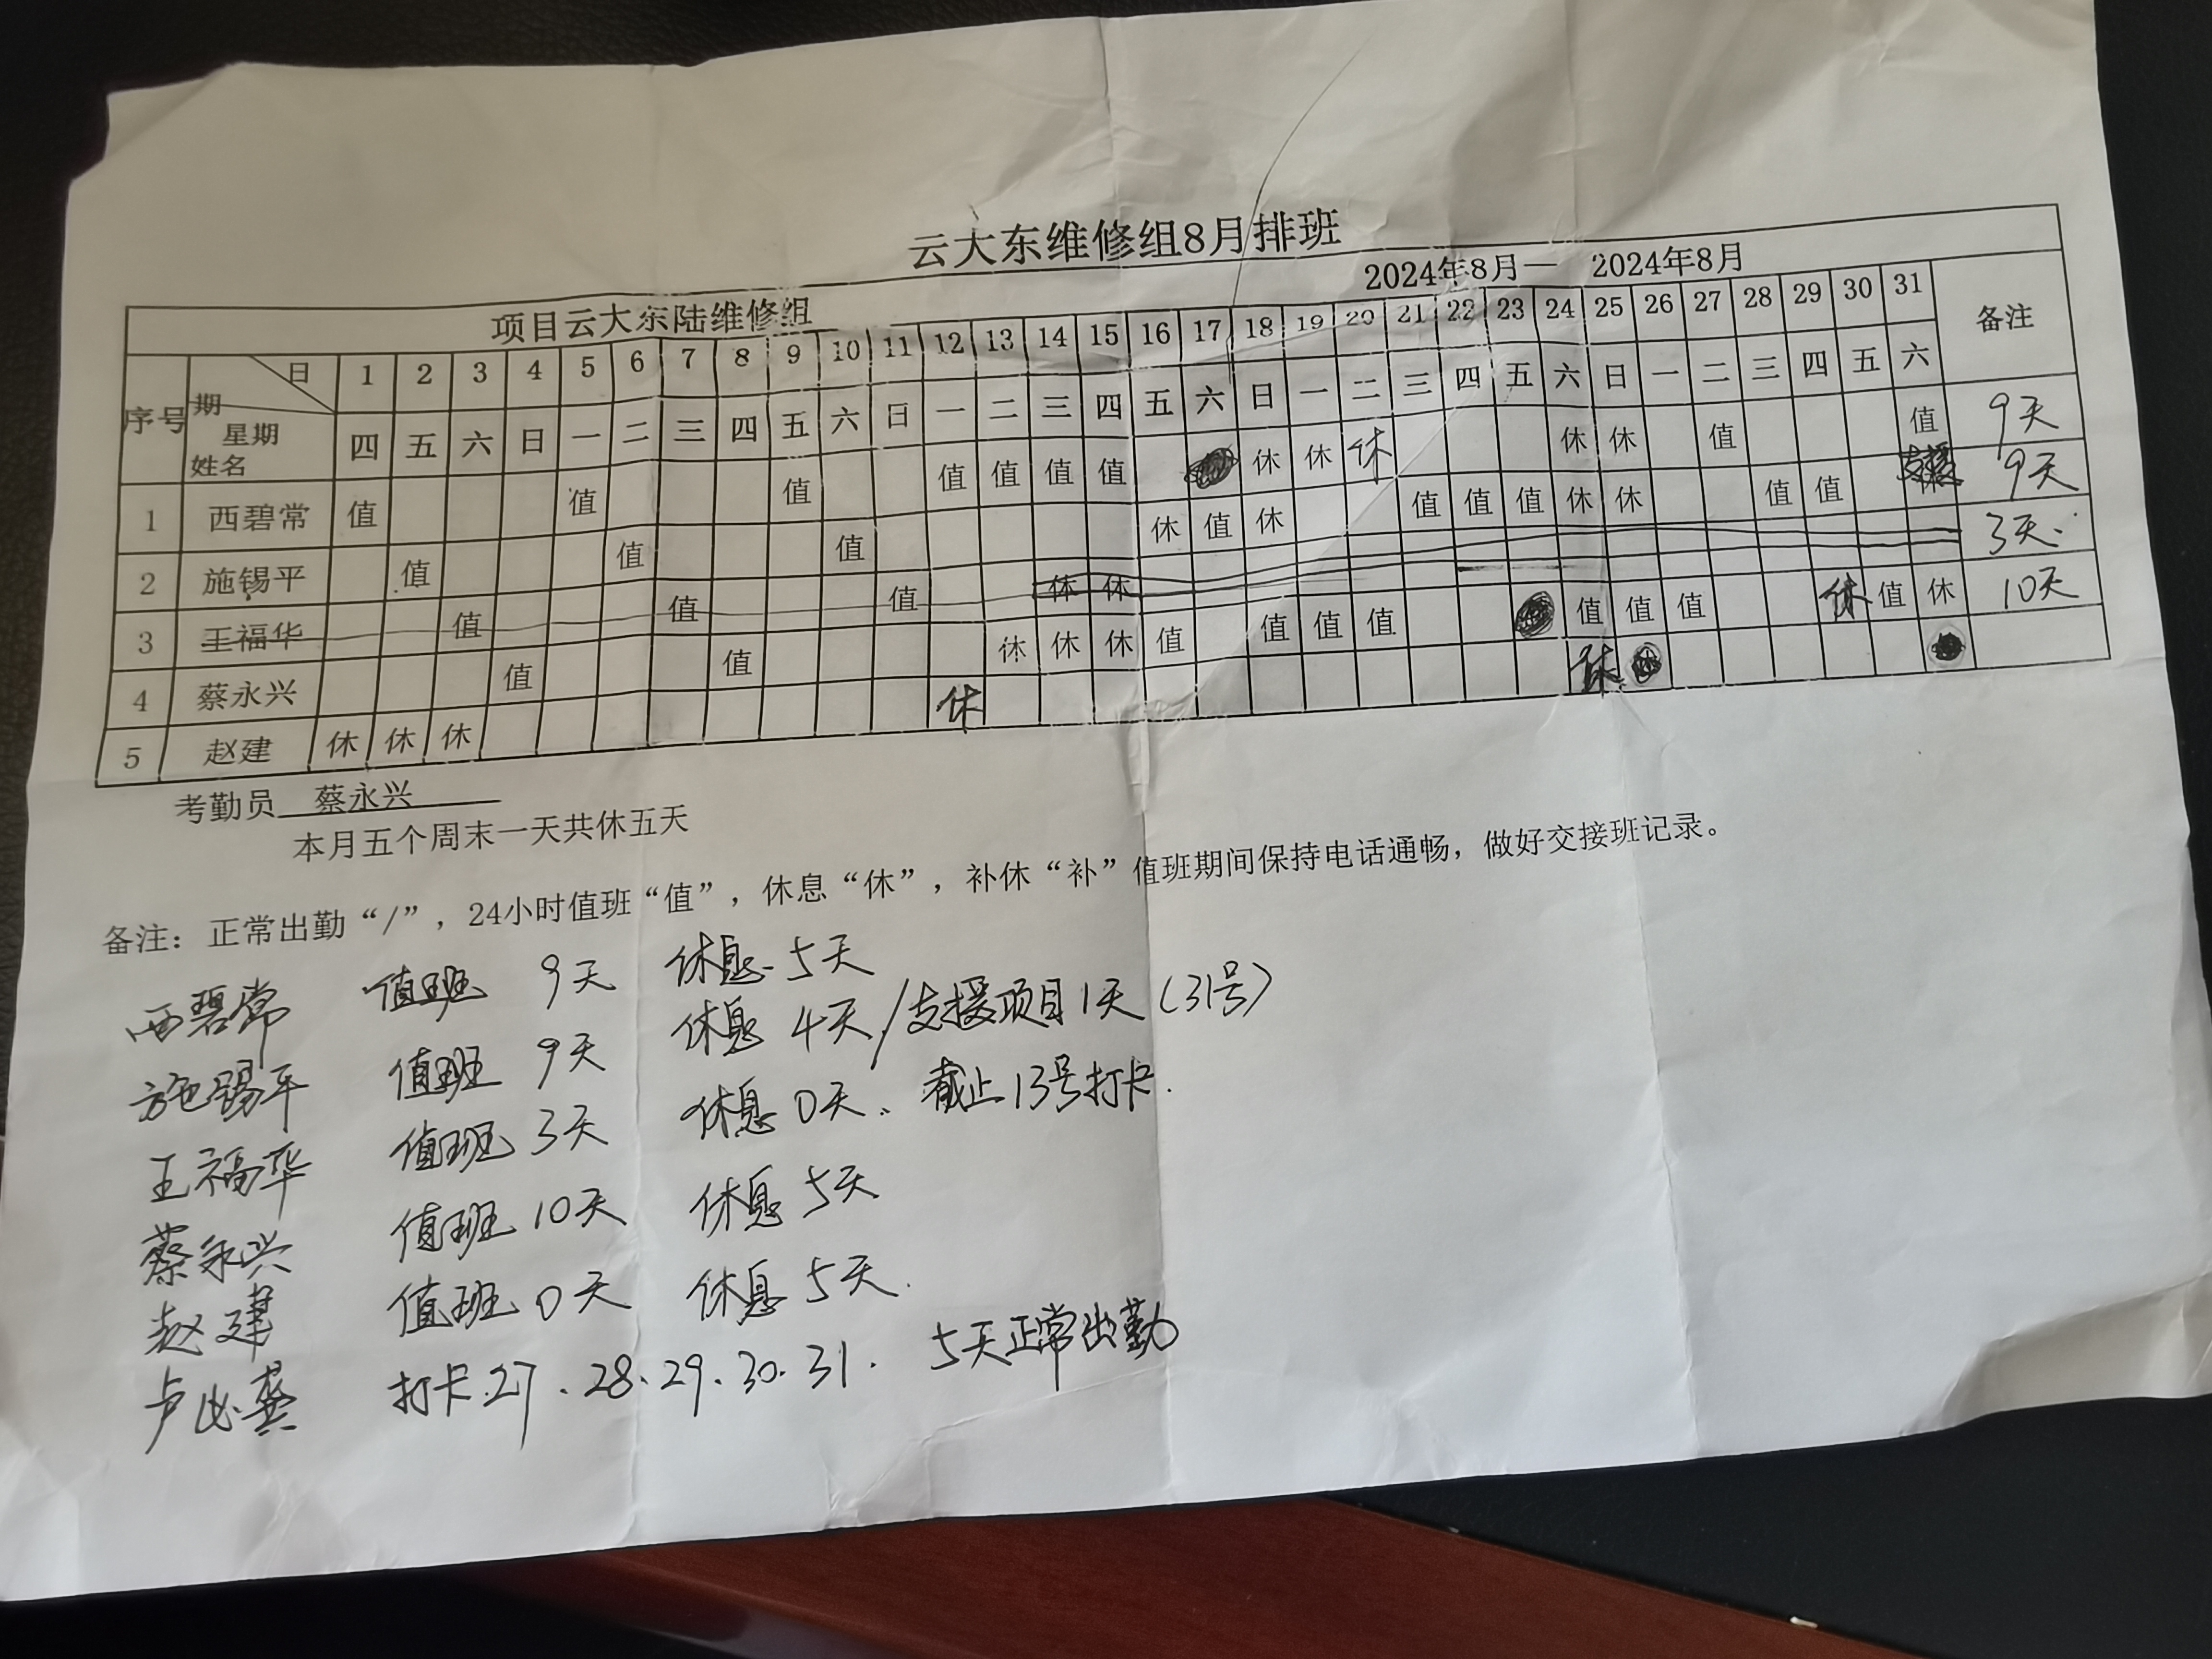 云大东维修组8月排班
项目云大东陆维修组 2024年8月— 2024年8月
序号 日期 星期 姓名 1 2 3 4 5 6 7 8 9 10 11 12 13 14 15 16 17 18 19 20 21 22 23 24 25 26 27 28 29 30 31 备注
四 五 六 日 一 二 三 四 五 六 日 一 二 三 四 五 六 日 一 二 三 四 五 六 日 一 二 三 四 五 六
1 西碧常 值 值 值 值 值 值 值 休 休 休 休 休 值 值 9天
2 施锡平 值 值 值 休 值 休 值 值 值 休 休 值 值 支援 9天
3 王福华 值 值 值 休 休 3天.
4 蔡永兴 值 值 休 休 休 值 值 值 值 值 值 值 休 值 休 10天
5 赵建 休 休 休 休 休
考勤员 蔡永兴
本月五个周末一天共休五天
备注：正常出勤“/”，24小时值班“值”，休息“休”，补休“补”值班期间保持电话通畅，做好交接班记录。
西碧常 值班 9天 休息 5天
施锡平 值班 9天 休息 4天/支援项目1天（31号）
王福华 值班 3天 休息 0天. 截止13号打卡.
蔡永兴 值班 10天 休息 5天
赵建 值班 0天 休息 5天.
卢 打卡.27.28.29.30.31. 5天正常出勤